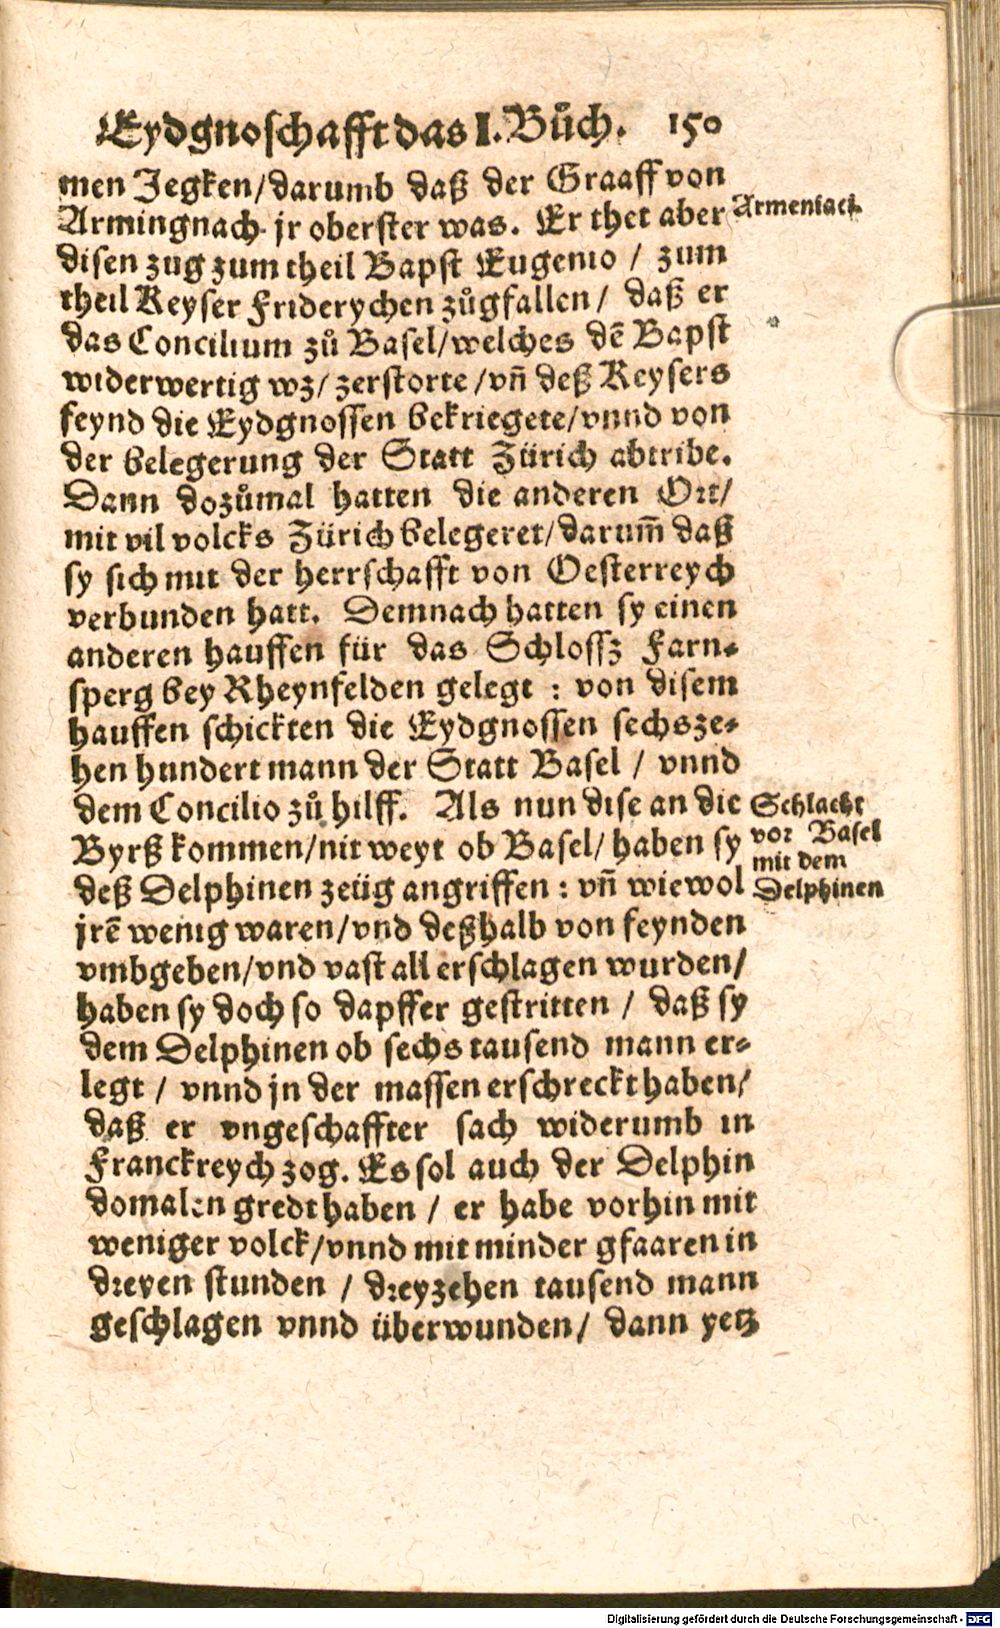 Eydgnoschafft das I. Bůch. 150
men Jegken/darumb daß der Graaff von
Armingnach jr oberster was. Er thet aber
Armeniaci.
disen zug zum theil Bapst Eugenio / zum
theil Keyser Friderychen zůgfallen/ daß er
das Concilium zů Basel/welches dē Bapst
widerwertig wz/ zerstorte/vñ deß Keysers
feynd die Eydgnossen bekriegete/vnnd von
der belegerung der Statt Zürich abtribe.
Dann dozůmal hatten die anderen Ort/
mit vil volcks Zürich belegeret/darum̄ daß
sy sich mit der herrschafft von Oesterreych
verbunden hatt. Demnach hatten sy einen
anderen hauffen für das Schlossz Farn-
sperg bey Rheynfelden gelegt : von disem
hauffen schickten die Eydgnossen sechsze-
hen hundert mann der Statt Basel / vnnd
dem Concilio zů hilff. Als nun dise an die
Byrß kommen/nit weyt ob Basel/ haben sy
deß Delphinen zeüg angriffen : vñ wiewol
Schlacht
vor Basel
mit dem
Delphinen
jrē wenig waren/vnd deßhalb von feynden
vmbgeben/vnd vast all erschlagen wurden/
haben sy doch so dapffer gestritten / daß sy
dem Delphinen ob sechs tausend mann er-
legt / vnnd jn der massen erschreckt haben/
daß er vngeschaffter sach widerumb in
Franckreych zog. Es sol auch der Delphin
domalen gredt haben / er habe vorhin mit
weniger volck/vnnd mit minder gfaaren in
dreyen stunden / dreyzehen tausend mann
geschlagen vnnd überwunden/ dann yetz
Digitalisierung gefördert durch die Deutsche Forschungsgemeinschaft - DFG